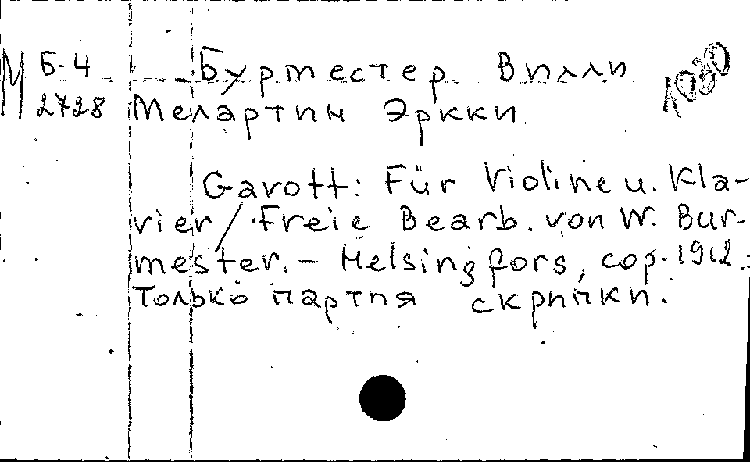 М Б-4 Бурместер Вилли
2728 Мелартин Эркки
1030
Gavott: Für Violine u. Kla-
vier / Freie Bearb. von W. Bur-
mester. — Helsingfors, cop. 1912.
Только партия скрипки.